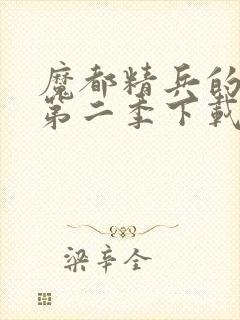 魔都精兵的
第二季下载
梁辛全